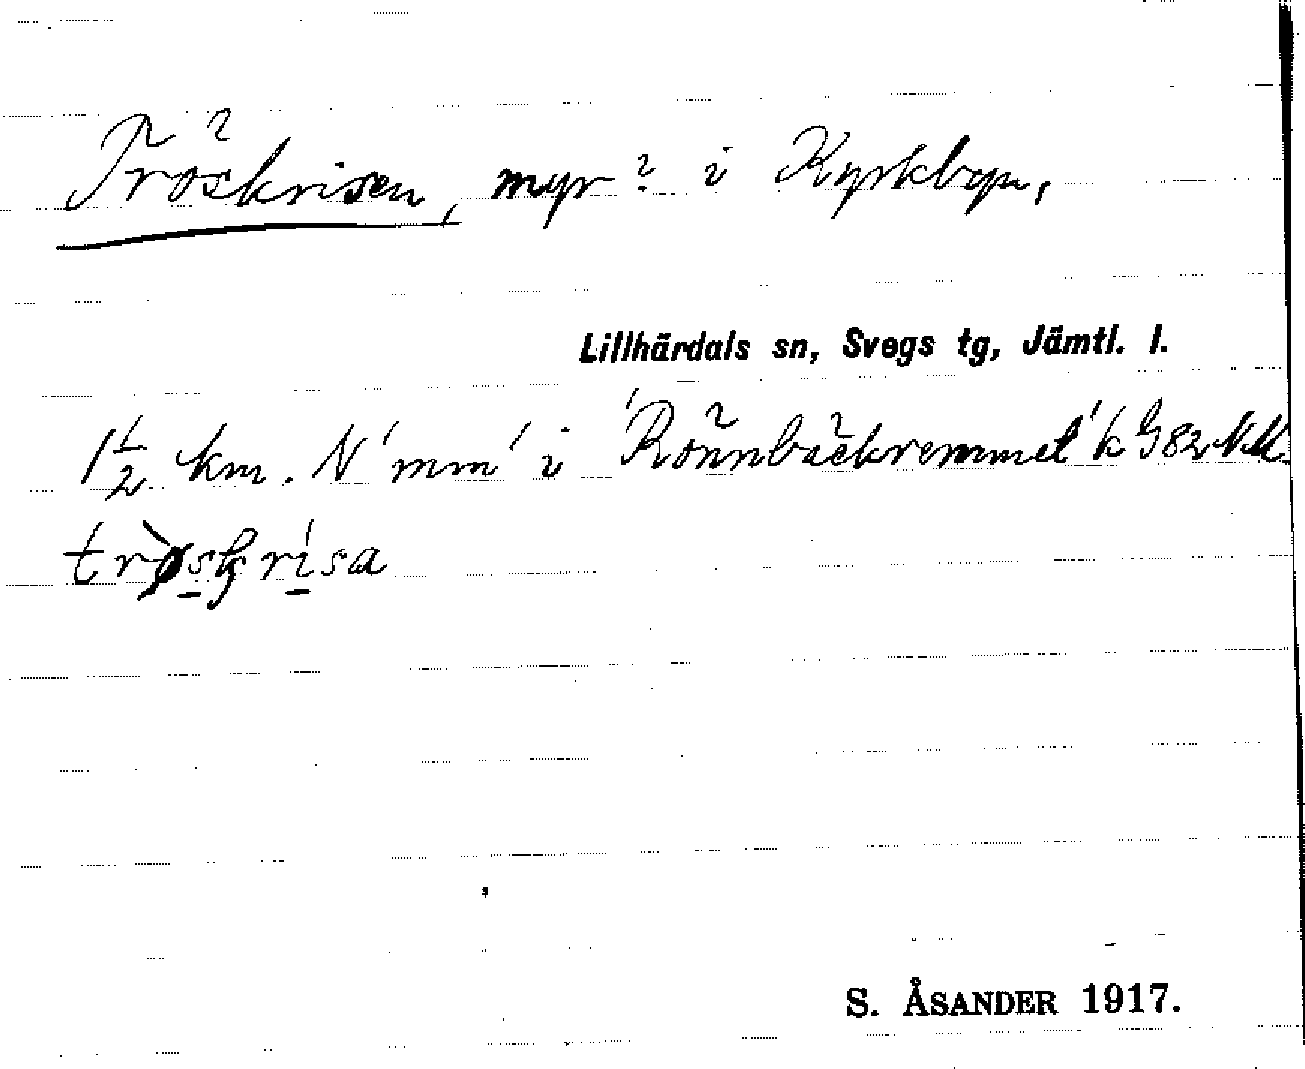 Tröskrisen, myr? i Kyrkbyn,
Lillhärdals sn, Svegs tg, Jämtl. l.
1½ km. N 'mm' i 'Rönnbäckremmet' k G 82
trøskrisa
S. ÅSANDER 1917.